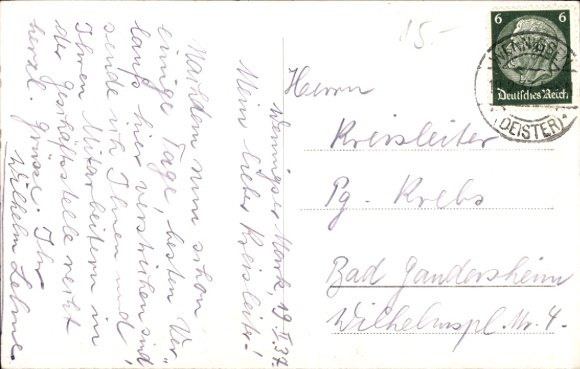 Wennigser Mark, 19.I.37
Mein lieber Kreisleiter!
Nachdem nun schon
einige Tage besten Ver-
laufs hier verstrichen sind,
sende ich Ihnen und
Ihren Mitarbeitern in
der Geschäftsstelle recht
herzl. Grüsse. Ihr
Wilhelm Lehne
15.-
6 6
Deutsches Reich
(DEISTER)
Herrn
Kreisleiter
Pg. Krebs
Bad Gandersheim
Wilhelmspl. Nr. 4.